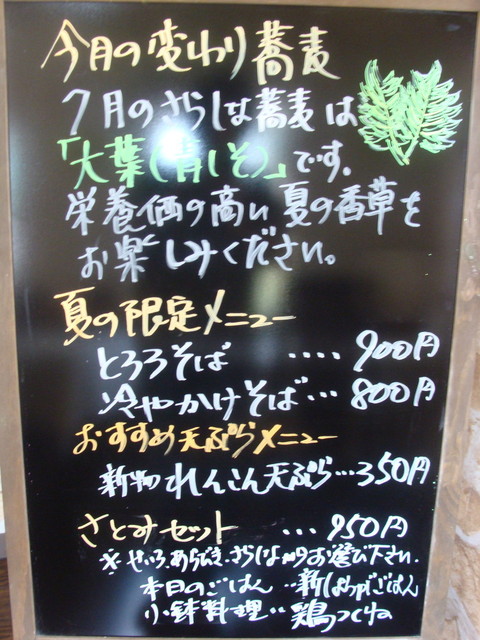 今月の変わり蕎麦
7月のさらしな蕎麦は
「大葉(青しそ)」です。
栄養価の高い夏の香草を
お楽しみください。
夏の限定メニュー
とろろそば ････ 900円
冷やかけそば… 800円
おすすめ天ぷらメニュー
新物れんこん天ぷら…350円
さとみセット … 950円
※せいろ、あらびき、さらしなよりお選び下さい。
本日のごはん ‥新しょうがごはん
小鉢料理‥ 鶏つくね